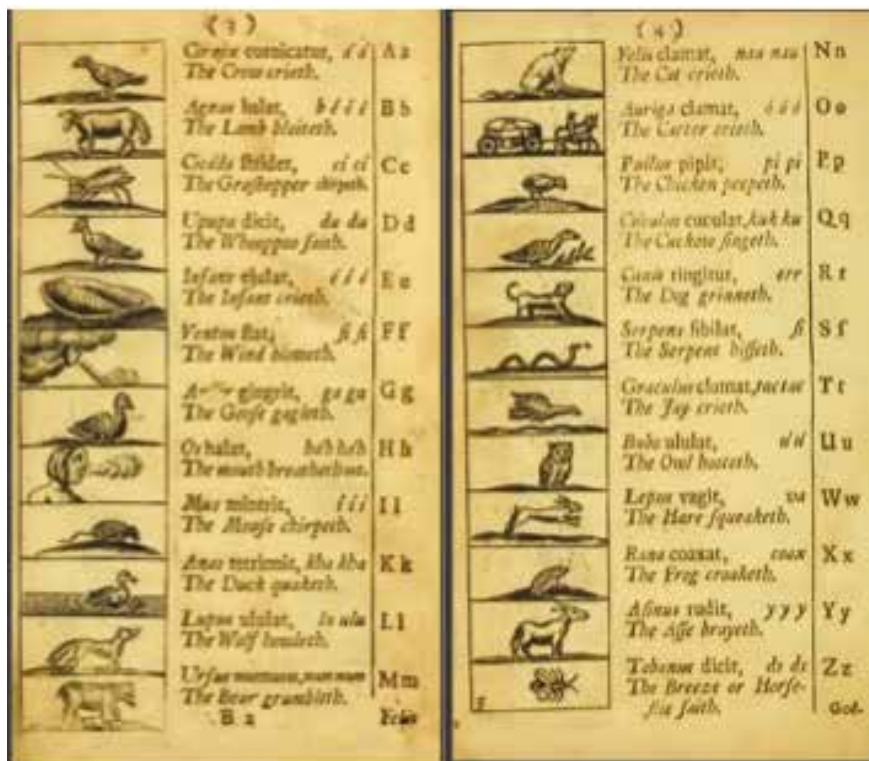 ( 3 )
Cornix cornicatur, á á A a
The Crow crieth.
Agnus balat, b é é é B b
The Lamb blaiteth.
Cicáda stridet, ci ci C c
The Grashopper chirpeth.
Upupa dicit, du du D d
The Whooppoo saith.
Infans ejulat, é é é E e
The Infant crieth.
Ventus flat, fi fi F f
The Wind bloweth.
Anser gingrit, ga ga G g
The Goose gagleth.
Os halat, hah hah H h
The mouth breatheth out.
Mus mintrit, í í í I i
The Mouse chirpeth.
Anas tetrinnit, kha kha K k
The Duck quaketh.
Lupus ululat, lu ulu L l
The Wolf howleth.
Ursus mum num M m
The Bear grumbleth.
B 2 Felis
( 4 )
Felis clamat, nau nau N n
The Cat crieth.
Auriga clamat, ó ó ó O o
The Carter crieth.
Pullus pipit, pi pi P p
The Chicken peepeth.
Cuculus cuculat, kuk ku Q q
The Cuckow singeth.
Canis ringitur, err R r
The Dog grinneth.
Serpens sibilat, si S ſ
The Serpent hisseth.
Graculus clamat, tac tac T t
The Jay crieth.
Bubo ululat, ú ú U u
The Owl hooteth.
Lepus vagit, va W w
The Hare squeaketh.
Rana coaxat, coax X x
The Frog croaketh.
Asinus rudit, y y y Y y
The Asse brayeth.
Tabanus dicit, ds ds Z z
The Breeze or Horse-
flie saith. God-